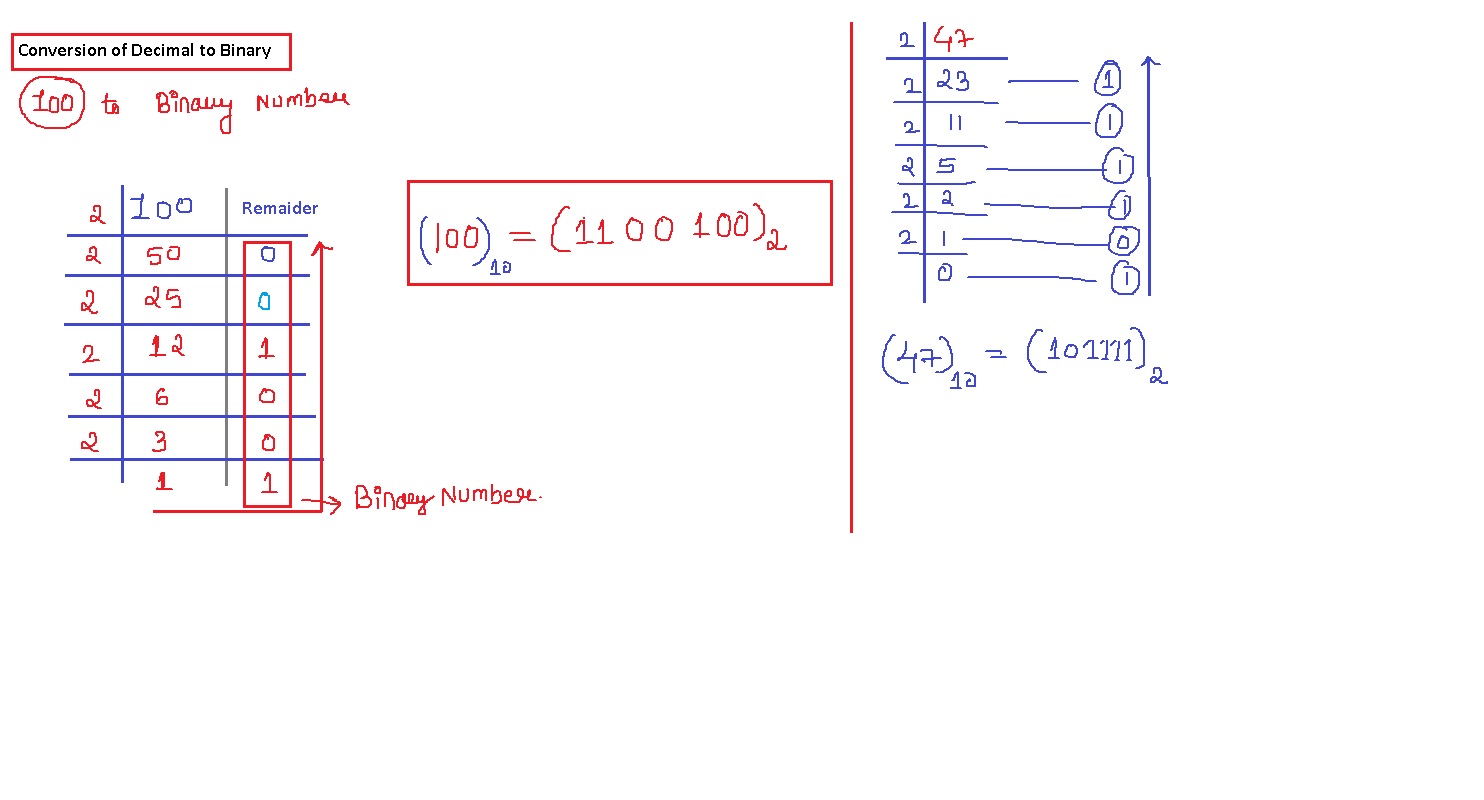 Conversion of Decimal to Binary
100 to Binary Number
2 100 Remaider
2 50 0
2 25 0
2 12 1
2 6 0
2 3 0
1 1
Binary Number.
(100)10 = (1100100)2
2 47
2 23 1
2 11 1
2 5 1
2 2 1
2 1 0
0 1
(47)10 = (101111)2